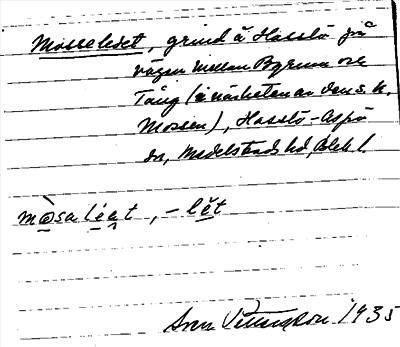 Mosseledet, grind å Hasslö på
vägen mellan Byrum och
Tång (i närheten av den s. k.
Mossen), Hasslö-Aspö
sn, Medelstads hd, Blek l.
mòsaléat, -lĕt
Sven 1935